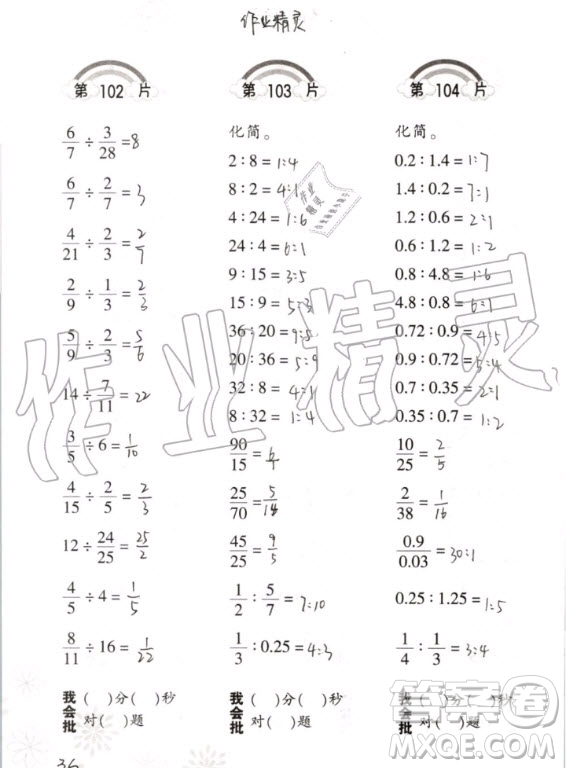 作业精灵
第 102 片
6/7 ÷ 3/28 = 8
6/7 ÷ 2/7 = 3
4/21 ÷ 2/3 = 2/7
2/9 ÷ 1/3 = 2/3
5/9 ÷ 2/3 = 5/6
14 ÷ 7/11 = 22
3/5 ÷ 6 = 1/10
4/15 ÷ 2/5 = 2/3
12 ÷ 24/25 = 25/2
4/5 ÷ 4 = 1/5
8/11 ÷ 16 = 1/22
我会批 ( )分( )秒
对( )题
第 103 片
化简。
2:8=1:4
8:2=4:1
4:24=1:6
24:4=6:1
9:15=3:5
15:9=5:3
36:20=9:5
20:36=5:9
32:8=4:1
8:32=1:4
90/15=6/1
25/70=5/14
45/25=9/5
1/2:5/7=7:10
1/3:0.25=4:3
我会批 ( )分( )秒
对( )题
第 104 片
化简。
0.2:1.4=1:7
1.4:0.2=7:1
1.2:0.6=2:1
0.6:1.2=1:2
0.8:4.8=1:6
4.8:0.8=6:1
0.72:0.9=4:5
0.9:0.72=5:4
0.7:0.35=2:1
0.35:0.7=1:2
10/25=2/5
2/38=1/16
0.9/0.03=30:1
0.25:1.25=1:5
1/4:1/3=3:4
我会批 ( )分( )秒
对( )题
36
作业精灵
作业精灵
答案圈
MXQE.COM